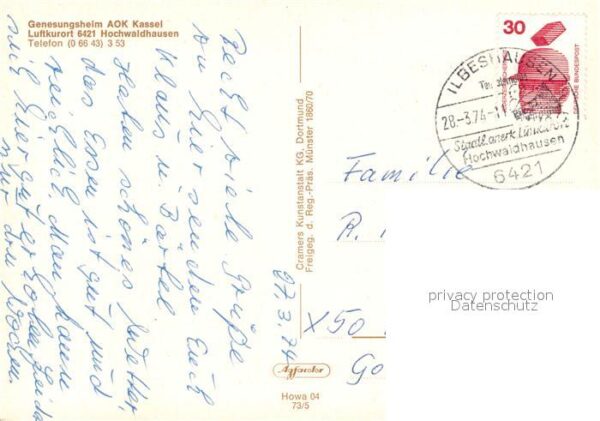 Genesungsheim AOK Kassel
Luftkurort 6421 Hochwaldhausen
Telefon (0 66 43) 3 53
27.3.74
Recht viele Grüße
von hier senden Euch
Klaus u. Bärbel.
Haben schönes Wetter,
das Essen ist gut und
reichlich. Man kann
sich hier gut erholen leider
nur drei Wochen.
Cramers Kunstanstalt KG, Dortmund
Freigeg. d. Reg.-Präs. Münster 1860/70
Agfacolor
Howa 04
73/5
30
DEUTSCHE BUNDESPOST
ILBESHAUSEN
28.-3.74.-11
Staatl. anerk. Luftkurort
Hochwaldhausen
6421
Familie
R.
X50
Go
privacy protection
Datenschutz